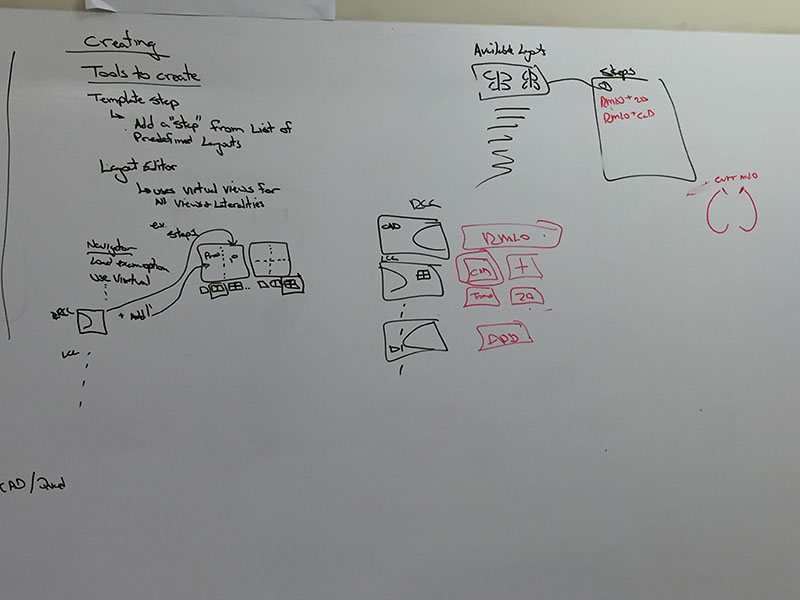 Creating
Tools to create
Template step
↳ Add a "step" from List of
Predefined Layouts
Layout Editor
↳ uses virtual views for
All views + Lateralities
ex.
steps
Navigator
Load exam option
Use Virtual
+ Add
LCC
CAD/Quad
Available Layouts
Steps
RMLO + 2D
RMLO + CAD
Curr MLO
CAD
LCC
RMLO
CAD
+
Tomo
2D
D
ADD